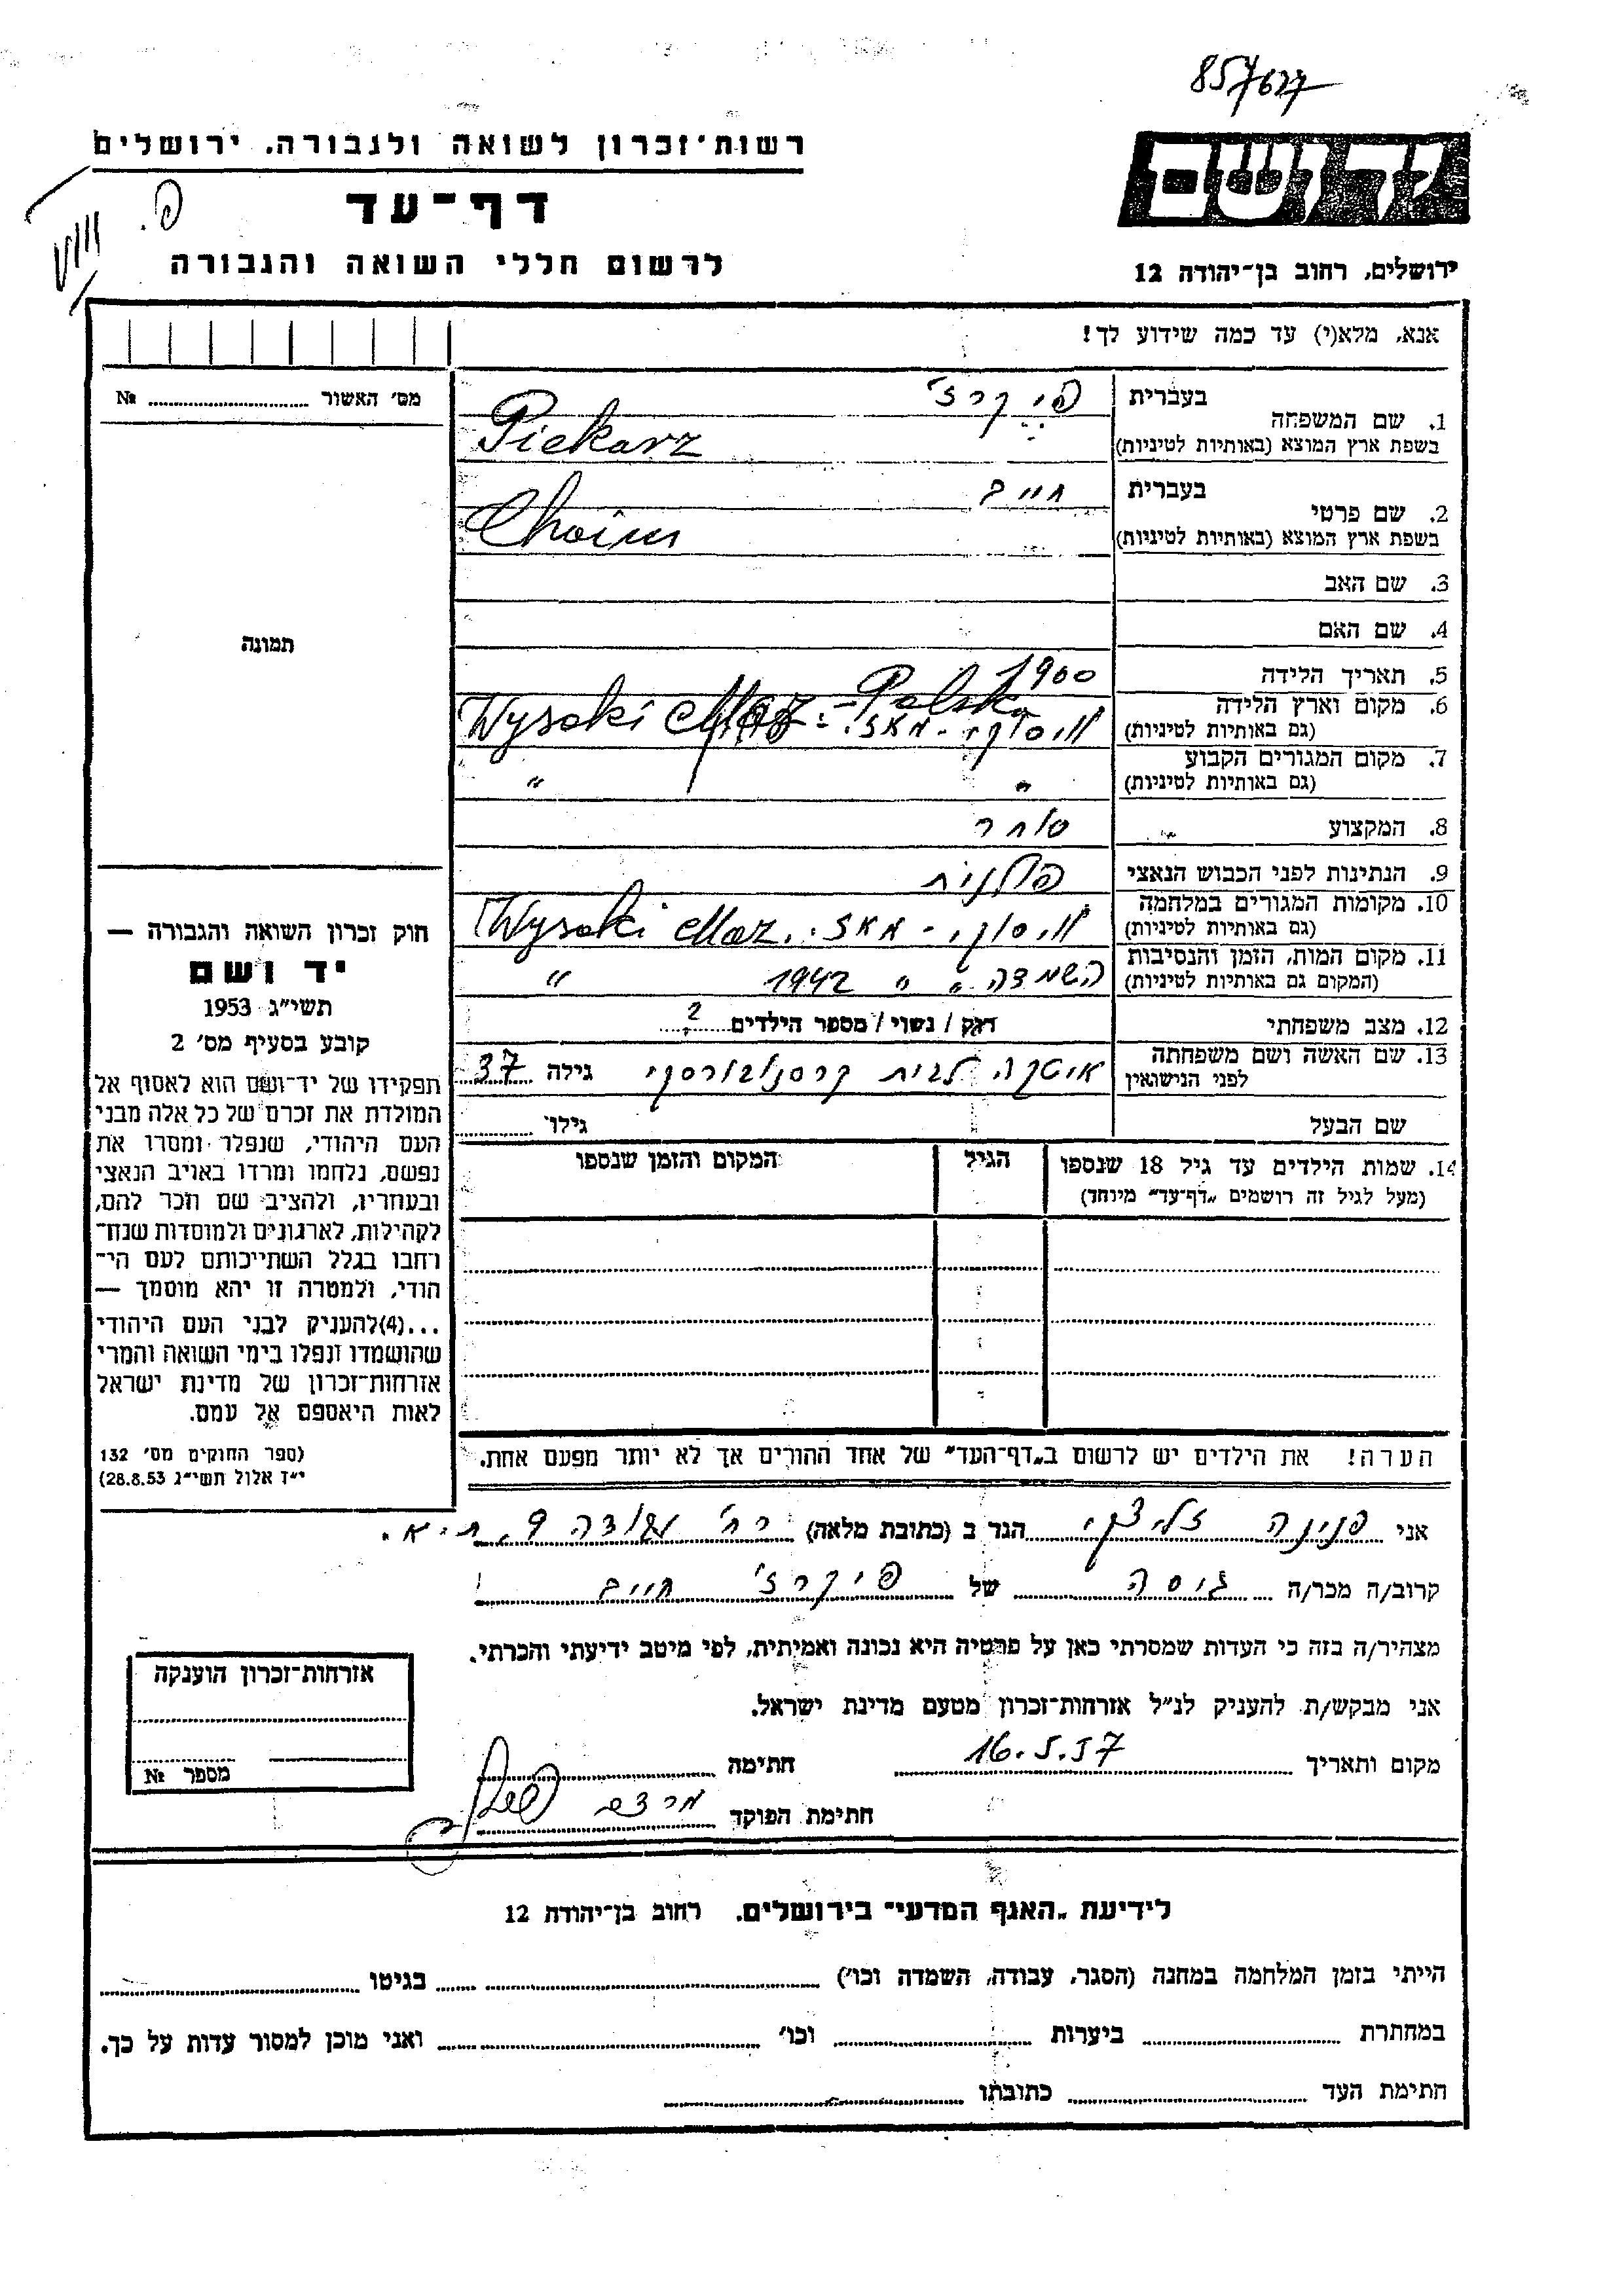 857627
רשות־זכרון לשואה ולגבורה. ירושלים
יד ושם
דף־עד
פ.
לרשום חללי השואה והגבורה
ירושלים, רחוב בן־יהודה 12
אנא, מלא(י) עד כמה שידוע לך!
מס׳ האשור № 
1. שם המשפחה
בעברית פיקרז׳
בשפת ארץ המוצא (באותיות לטיניות) Piekarz
2. שם פרטי
בעברית חיים
בשפת ארץ המוצא (באותיות לטיניות) Chaim
3. שם האב
4. שם האם
תמונה
5. תאריך הלידה 1900
6. מקום וארץ הלידה
(גם באותיות לטיניות) ווסוקי-מאז. Wysoki Maz.-Polska
7. מקום המגורים הקבוע
(גם באותיות לטיניות) " "
8. המקצוע סוחר
9. הנתינות לפני הכבוש הנאצי פולנית
10. מקומות המגורים במלחמה
(גם באותיות לטיניות) ווסוקי-מאז. Wysoki Maz.
11. מקום המות, הזמן והנסיבות
(המקום גם באותיות לטיניות) השמדה " " 1942 "
12. מצב משפחתי רווק / נשוי / מספר הילדים 2
13. שם האשה ושם משפחתה
לפני הנישואין איטקה לבית גילה 37
שם הבעל גילו
14. שמות הילדים עד גיל 18 שנספו הגיל המקום והזמן שנספו
(מעל לגיל זה רושמים „דף־עד״ מיוחד)
הערה! את הילדים יש לרשום ב„דף־העד״ של אחד ההורים אך לא יותר מפעם אחת.
חוק זכרון השואה והגבורה —
יד ושם
תשי״ג 1953
קובע בסעיף מס׳ 2
תפקידו של יד־ושם הוא לאסוף אל
המולדת את זכרם של כל אלה מבני
העם היהודי, שנפלו ומסרו את
נפשם, נלחמו ומרדו באויב הנאצי
ובעוזריו, ולהציב שם וזכר להם,
לקהילות, לארגונים ולמוסדות שנח־
רחבו בגלל השתייכותם לעם הי־
הודי, ולמטרה זו יהא מוסמך —
...(4)להעניק לבני העם היהודי
שהושמדו ונפלו בימי השואה והמרי
אזרחות־זכרון של מדינת ישראל
לאות היאספם אל עמם.
(ספר החוקים מס׳ 132
י״ז אלול תשי״ג 28.8.53)
אני פנינה הגר ב (כתובת מלאה) רח׳ 9, ת״א.
קרוב/ה מכר/ה גיסה של פיקרז׳ חיים
מצהיר/ה בזה כי העדות שמסרתי כאן על פרטיה היא נכונה ואמיתית, לפי מיטב ידיעתי והכרתי.
אני מבקש/ת להעניק לנ״ל אזרחות־זכרון מטעם מדינת ישראל.
מקום ותאריך 16.5.57 חתימה
חתימת הפוקד
אזרחות־זכרון הוענקה
מספר №
לידיעת „האגף המדעי״ בירושלים. רחוב בן־יהודה 12
הייתי בזמן המלחמה במחנה (הסגר, עבודה, השמדה וכו׳) בגיטו
במחתרת ביערות וכו׳ ואני מוכן למסור עדות על כך.
חתימת העד כתובתו